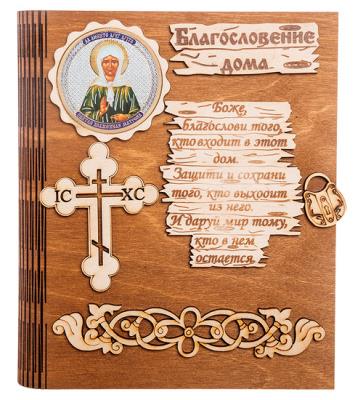 Благословение
дома
Боже,
благослови того,
кто входит в этот
дом.
Защити и сохрани
того, кто выходит
из него.
И даруй мир тому,
кто в нем
остается.
IC XC